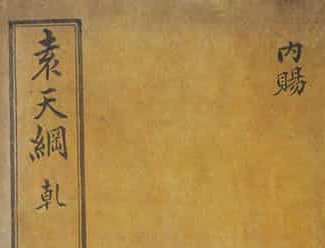 内賜
袁天綱 乹